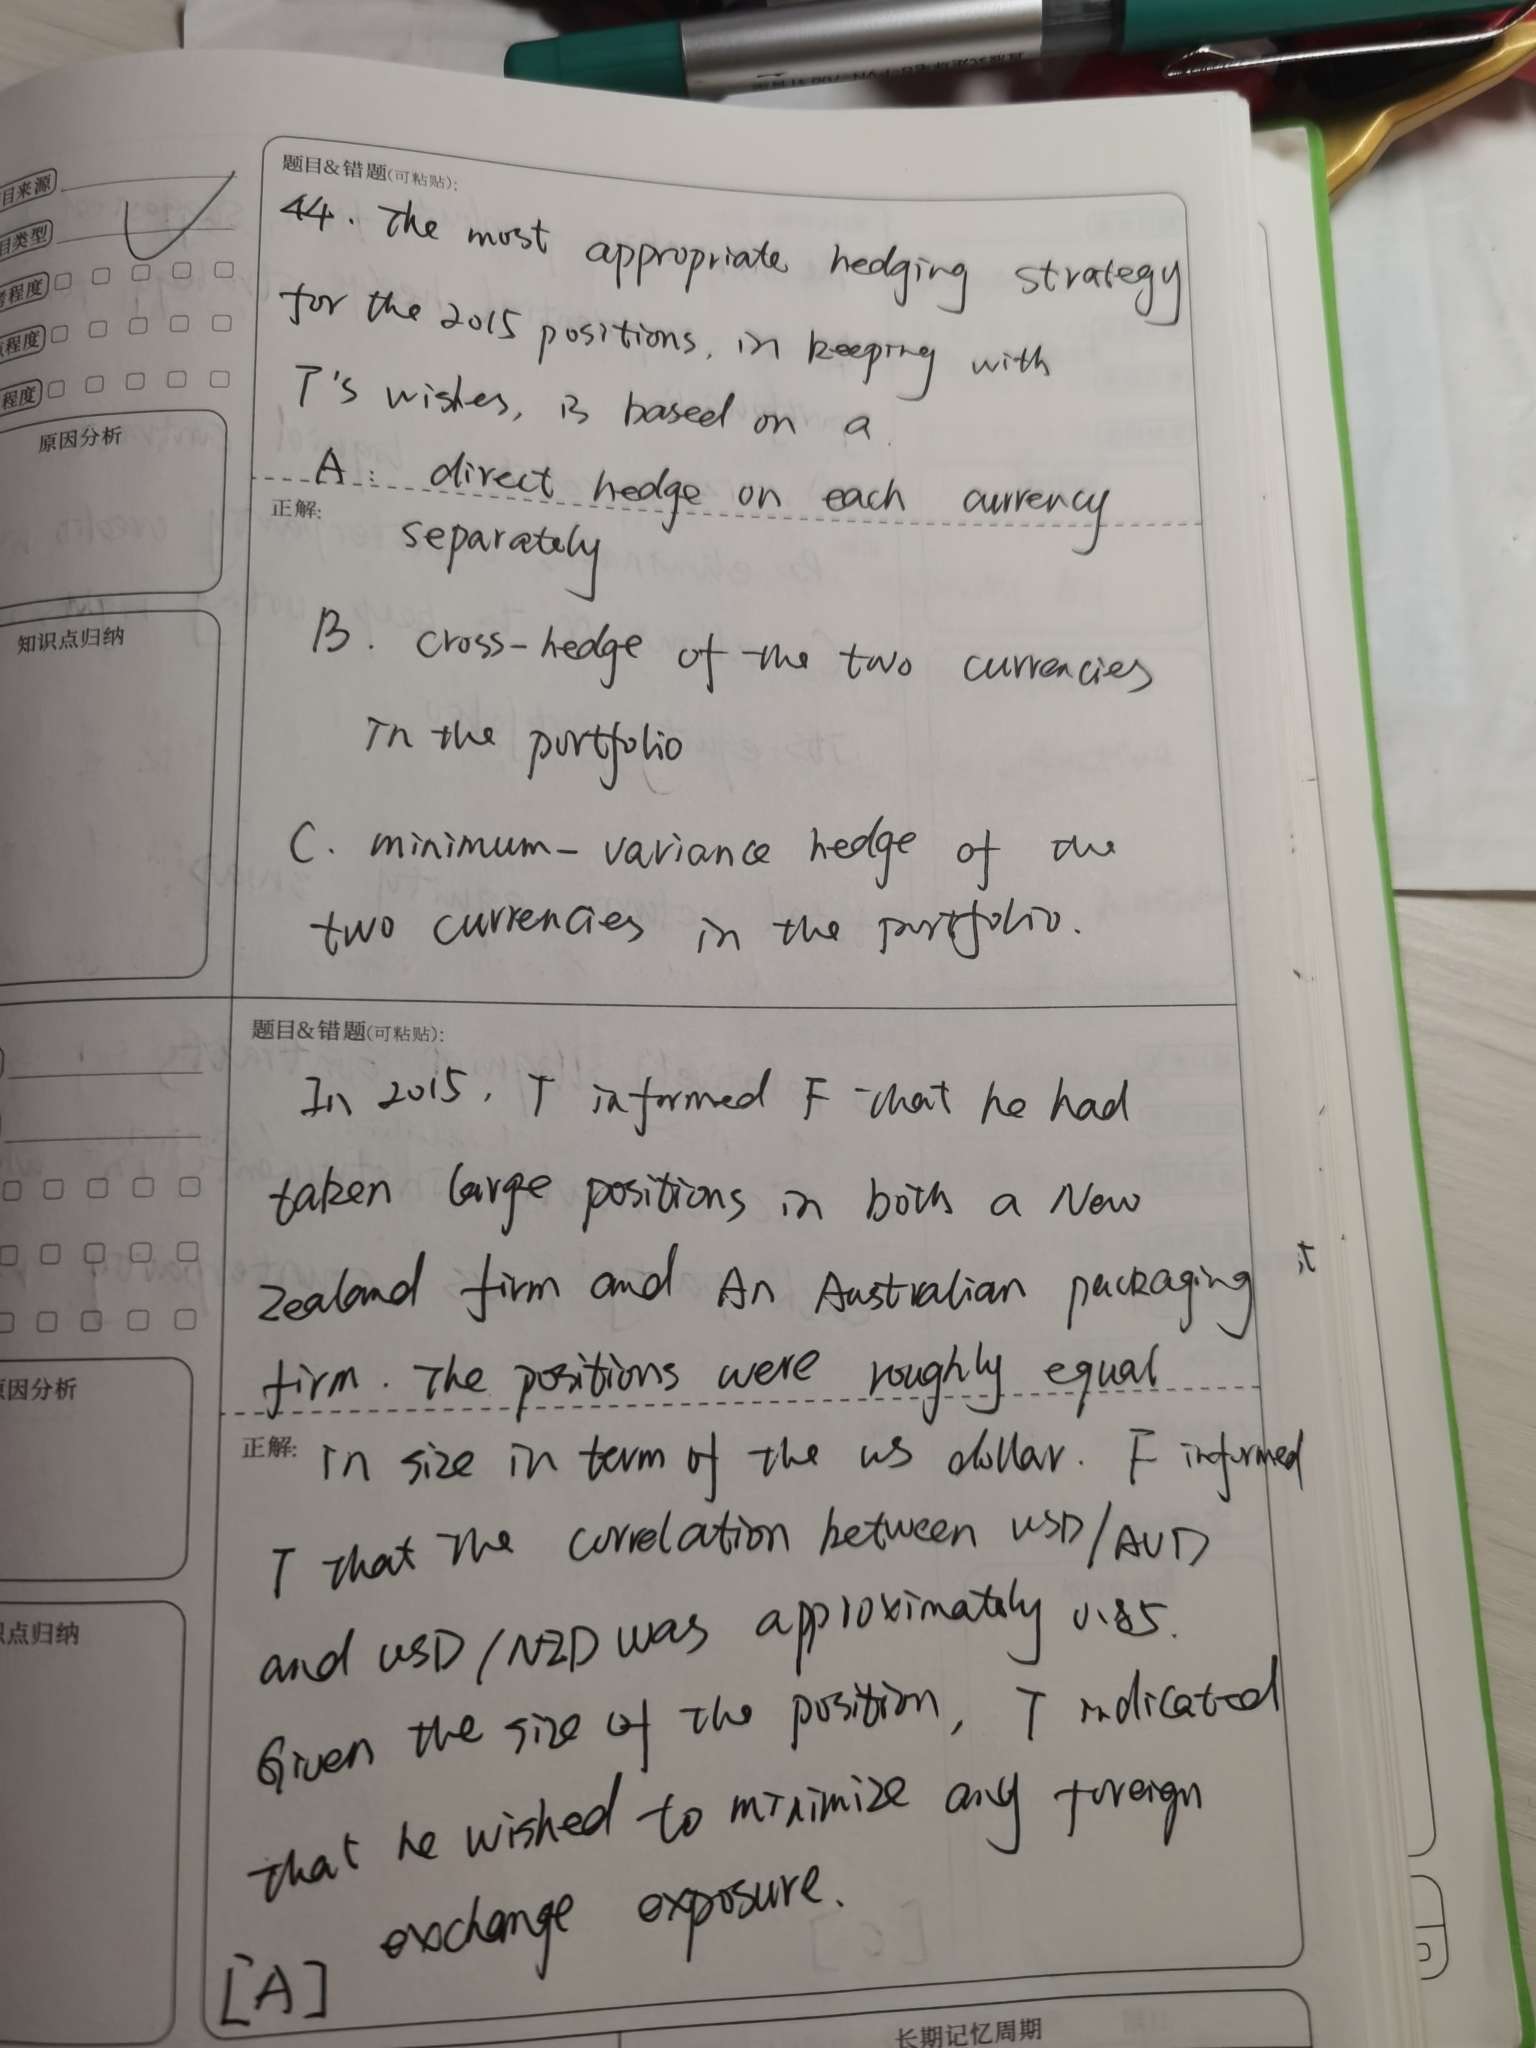 题目&错题(可粘贴):
44. The most appropriate hedging strategy
for the 2015 positions, in keeping with
T's wishes, is based on a
A. direct hedge on each currency
正解:
separately
B. cross-hedge of the two currencies
in the portfolio
C. minimum-variance hedge of the
two currencies in the portfolio.
目来源
目类型
程度
程度
程度
原因分析
知识点归纳
题目&错题(可粘贴):
In 2015, T informed F that he had
taken large positions in both a New
Zealand firm and An Australian packaging
firm. The positions were roughly equal
正解:
in size in term of the US dollar. F informed
T that the correlation between USD/AUD
and USD/NZD was approximately 0.85.
Given the size of the position, T indicated
that he wished to minimize any foreign
exchange exposure.
[A]
因分析
点归纳
长期记忆周期
it